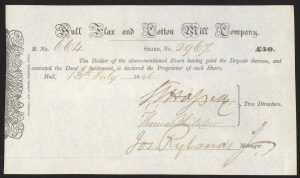 Hull Flax and Cotton Mill Company.
R. No. 664. SHARE, No. 2967. £50.
The Holder of the above-mentioned Share having paid the Deposit thereon, and
executed the Deed of Settlement, is declared the Proprietor of such Share.
Hull, 18th July 184
Two Directors.
Thomas
Jos Rylands Jr. Manager.